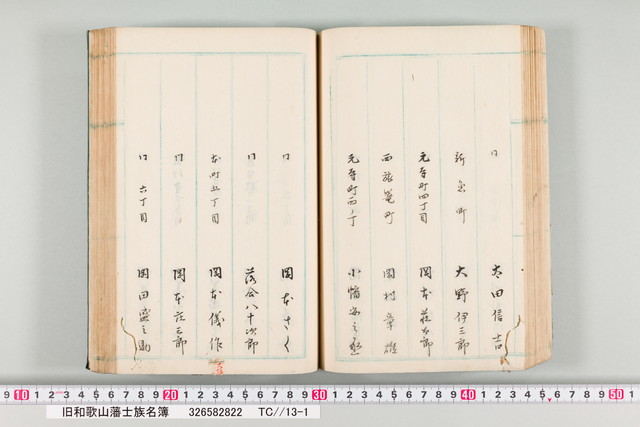 同 太田信吉
新魚町 大野伊三郎
元寺町四丁目 岡本荘右郎
西旅篭町 岡村幸雄
元寺町西ノ丁 小幡
同 岡本さく
同 落合八十次郎
本町五丁目 岡本儀作
同 岡本庄三郎
同 六丁目 岡田盛之助
9 10 1 2 3 4 5 6 7 8 9 20 1 2 3 4 5 6 7 8 9 30 1 2 3 4 5 6 7 8 9 40 1 2 3 4 5 6 7 8 9 50 1
旧和歌山藩士族名簿 326582822 TC//13-1